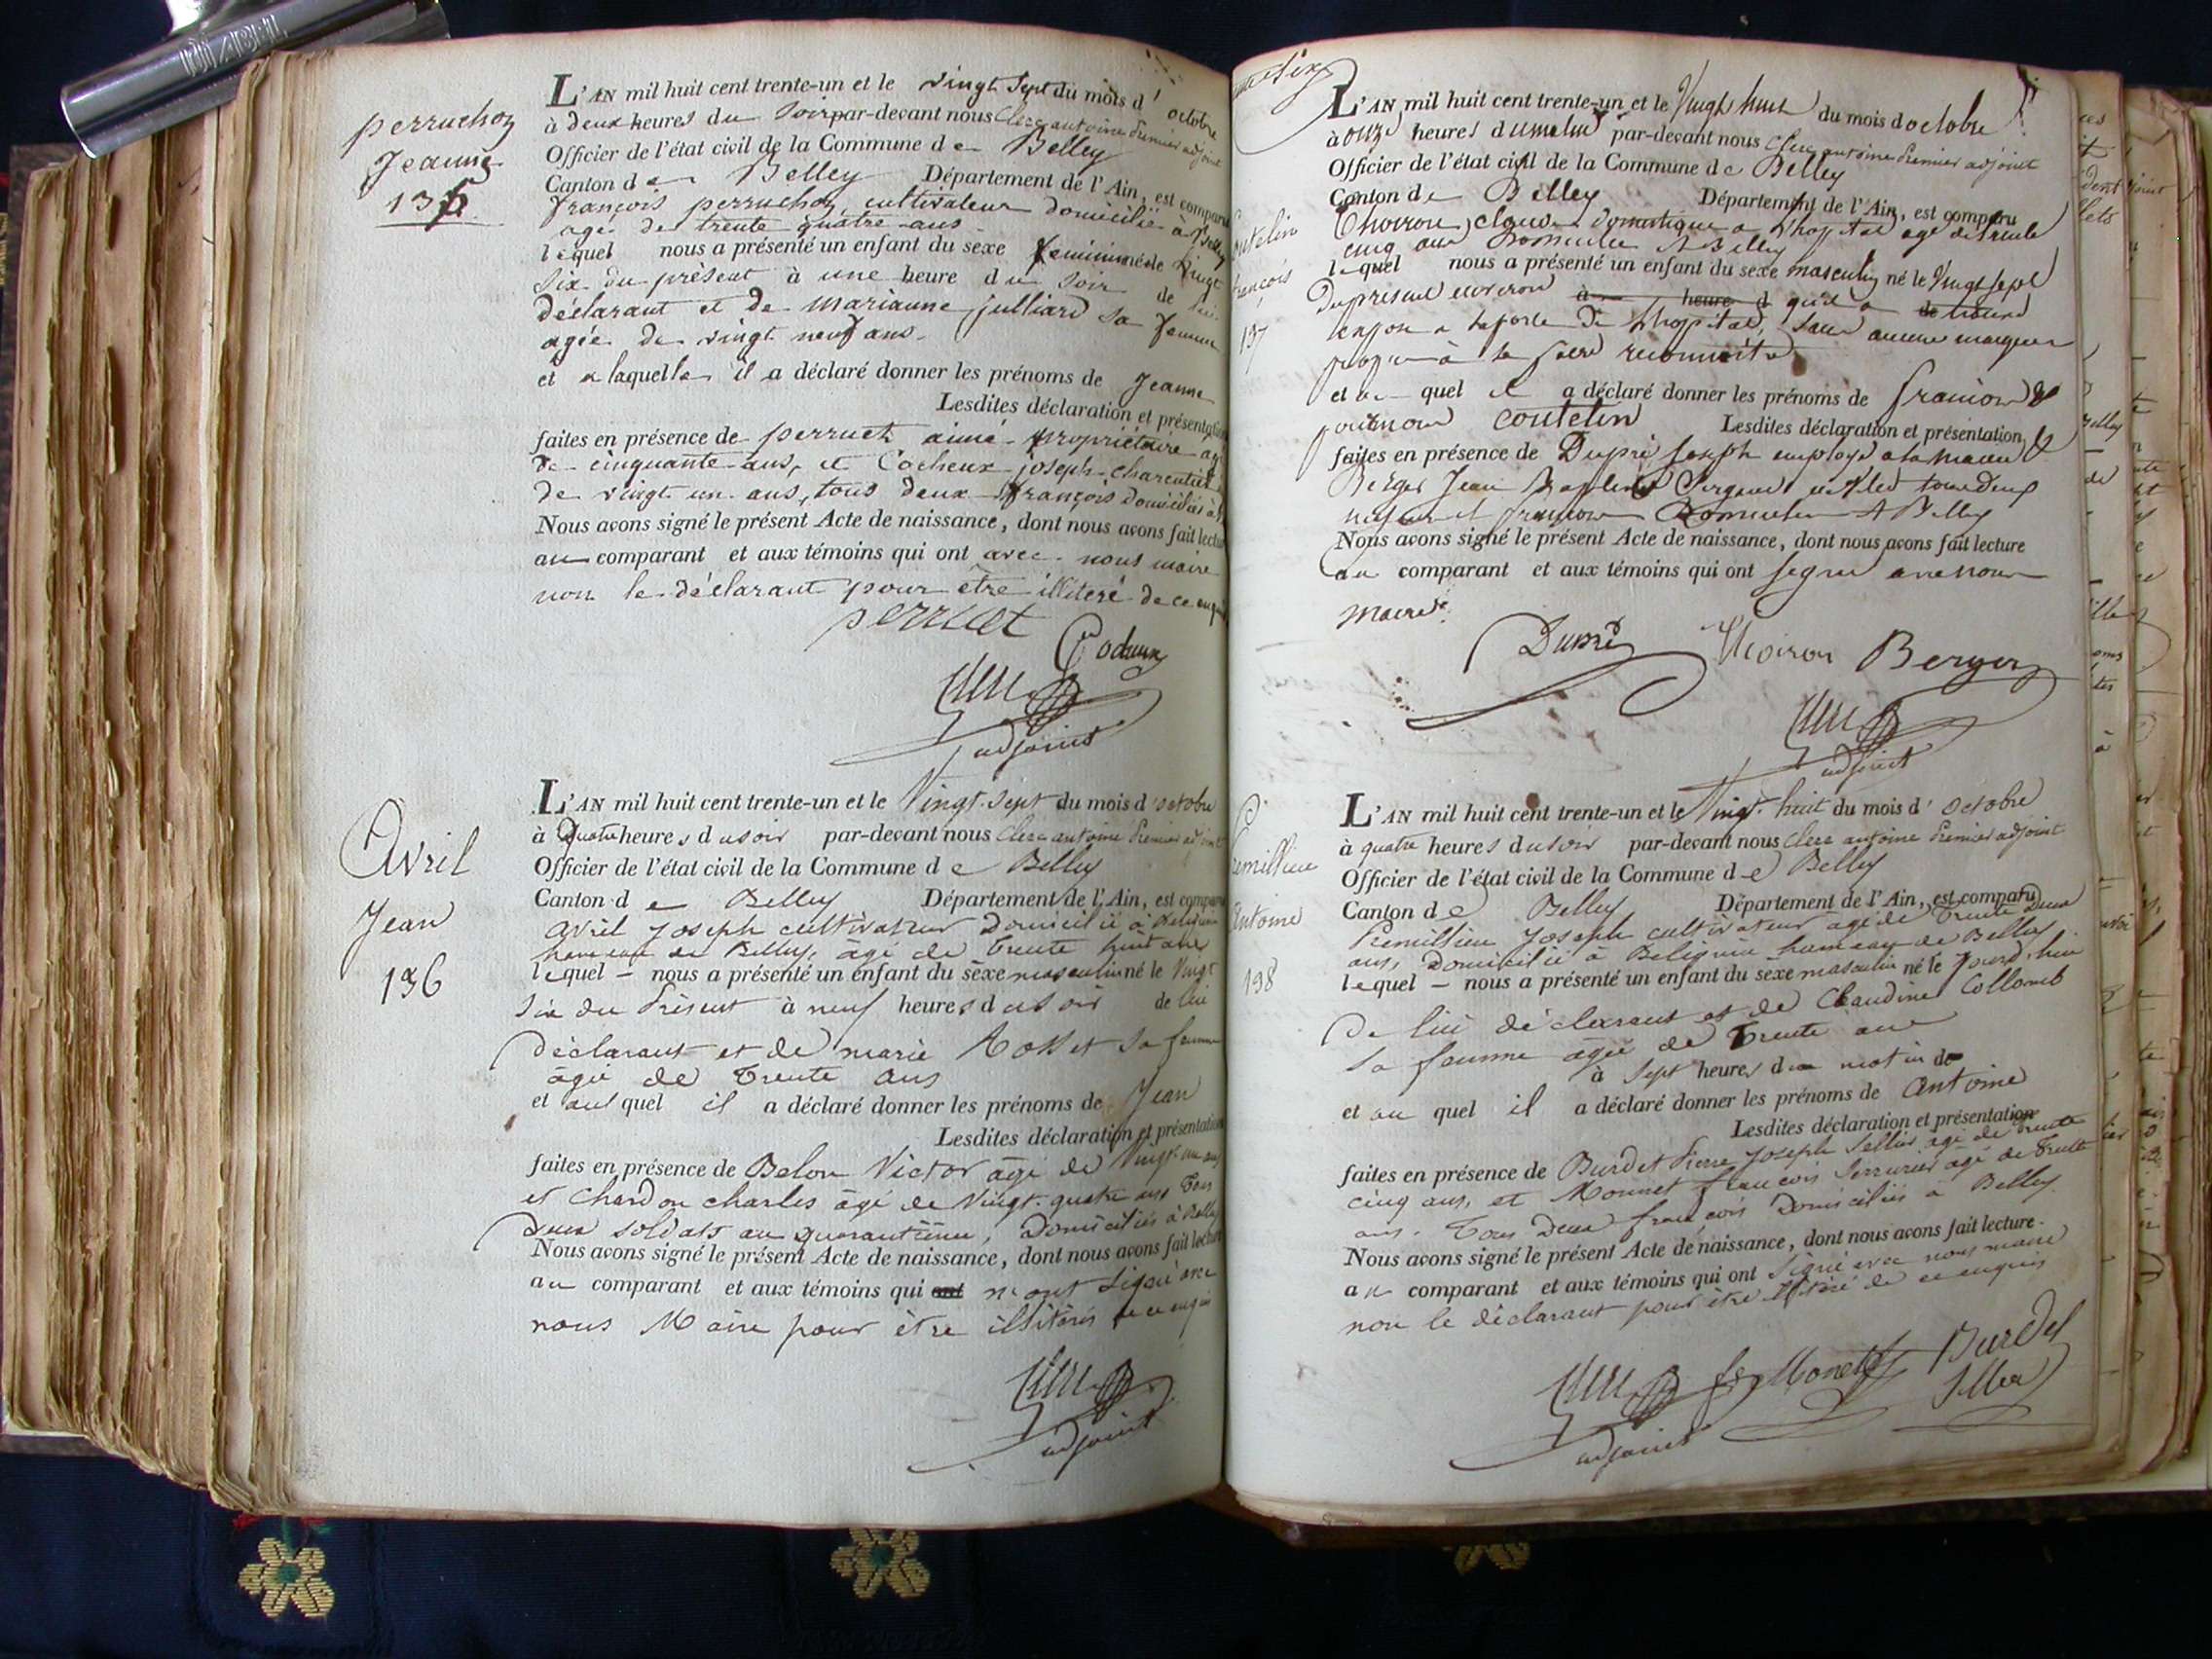 DIABEL
perruchoz
Jeanne
135
L'AN mil huit cent trente-un et le vingt Sept du mois d'octobre
à deux heures du Soir par-devant nous Clerc antoine Premier adjoint
Officier de l'état civil de la Commune de Belley
Canton de Belley Département de l'Ain, est comparu
françois perruchoz, cultivateur domicilié à Belley
agé de trente quatre ans
lequel nous a présenté un enfant du sexe feminin née le Vingt
Six du présent à une heure du Soir de lui
déclarant et de marianne julliard sa femme
agée de vingt neuf ans.
et a laquelle il a déclaré donner les prénoms de Jeanne
Lesdites déclaration et présentation
faites en présence de perruct aimé propriétaire agé
de cinquante ans, et Cocheux joseph charentier
de vingt un ans, tous deux françois Domiciliés à
Nous avons signé le présent Acte de naissance, dont nous avons fait lecture
au comparant et aux témoins qui ont avec nous maire
non le déclarant pour être illiteré de ce enquis
perruct
adjoint
Avril
Jean
136
L'AN mil huit cent trente-un et le Vingt Sept du mois d'octobre
à Quatre heures du soir par-devant nous Clerc antoine Premier adjoint
Officier de l'état civil de la Commune de Belley
Canton de Belley Département de l'Ain, est comparu
avril joseph cultivateur Domicilié à Belignin
hameau de Belley, âgé de Trente huit ans
lequel nous a présenté un enfant du sexe masculin né le Vingt
Six du Présent à neuf heures du soir de lui
Déclarant et de marie Rosset Sa femme
âgée de Trente ans
et auquel il a déclaré donner les prénoms de Jean
Lesdites déclaration et présentation
faites en présence de Belon Victor âgé de Vingt un ans
et Chardon charles âgé de Vingt quatre ans Tous
Deux soldats au quarantième, Domiciliés à Belley
Nous avons signé le présent Acte de naissance, dont nous avons fait lecture
au comparant et aux témoins qui ont n'ont Signé avec
nous Maire pour être illitérés de ce enquis
adjoint
L'AN mil huit cent trente-un et le Vingt huit du mois d octobre
à onze heures du matin par-devant nous Clerc antoine Premier adjoint
Officier de l'état civil de la Commune de Belley
Canton de Belley Département de l'Ain, est comparu
Thoiron Claude Domestique a Lhopital agé de trente
cinq ans Domicilié A Belley
lequel nous a présenté un enfant du sexe masculin né le Vingt Sept
Du present environ à heure d qu'il a de trouvé
a la porte De Lhopital, Sans aucune marque
propre à le faire reconnoitre
et au quel il a déclaré donner les prénoms de françois
coutelin Lesdites déclaration et présentation
coutelin
françois
137
faites en présence de Dupré Joseph employé a la mairie &
Berger Jean Baptiste Sergent de Ville tous deux
majeurs et françois Domiciliés A Belley
Nous avons signé le présent Acte de naissance, dont nous avons fait lecture
au comparant et aux témoins qui ont signé avec nous
Maire
Dupré Thoiron Berger
adjoint
Premillieu
antoine
138
L'AN mil huit cent trente-un et le Vingt huit du mois d'octobre
à quatre heures du soir par-devant nous Clerc antoine Premier adjoint
Officier de l'état civil de la Commune de Belley
Canton de Belley Département de l'Ain, est comparu
Premillieu Joseph cultivateur âgé de Trente Deux
ans, Domicilié à Belignin hameau de Belley
lequel nous a présenté un enfant du sexe masculin né le jourd'hui
De lui déclarant et de Claudine Collomb
Sa femme âgée de Trente ans
à Sept heures du matin de
et au quel il a déclaré donner les prénoms de antoine
Lesdites déclaration et présentation
faites en présence de Burdet Pierre Joseph Sellier âgé de Trente
cinq ans, et Monnet francois Serrurier âgé de Trente
ans. Tous Deux francois Domiciliés à Belley
Nous avons signé le présent Acte de naissance, dont nous avons fait lecture
au comparant et aux témoins qui ont Signé avec nous maire
non le déclarant pour être illitéré de ce enquis
Monet Burdet
adjoint Sellier